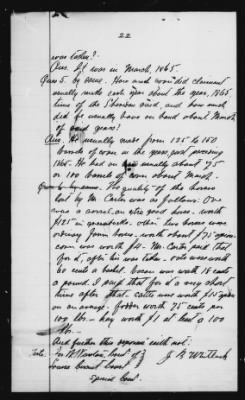 22
was taken?
Ans. It was in March, 1865.
Ques 5. by same. How much corn did claimant
usually make each year about the year, 1865,
time of the Sherman raid, and how much
did he usually have on hand about March
of each year?
Ans. He usually made from 125 to 150
barrels of corn in the years just preceding
1865. He had on usually about 75
or 100 barrels of corn about March.
Ques by same. The quality of the horses
lost by Mr. Carter was as follows: One
was a sorrel, an extra good horse, worth
$125 in greenbacks. other two horses were
ordinary farm horses, worth about $75 apiece.
corn was worth $1. Mr. Carter paid that
for it, after his was taken. oats were worth
60 cents a bushel. bacon was worth 18 cents
a pound. I paid that for it a very short
time after that. cattle were worth $15 apiece
on an average. fodder worth 75 cents per
100 lbs. hay worth $1 at least a 100
lbs.
And further this deponent saith not.